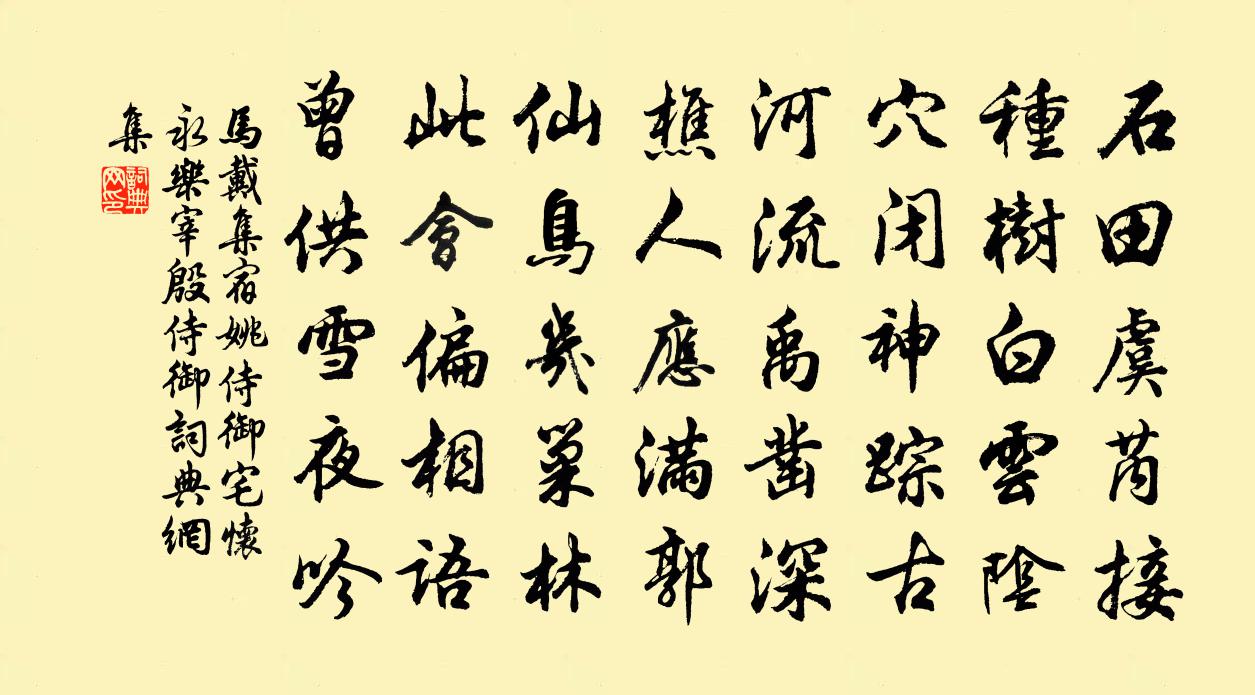 石田虞芮接
種樹白雲陰
穴闭神踪古
河流禹凿深
樵人應满郭
仙鳥幾巢林
此會偏相語
曾供雪夜吟
馬戴集宿姚侍御宅懷
永樂宰殷侍御詞典網
集
詞典網印